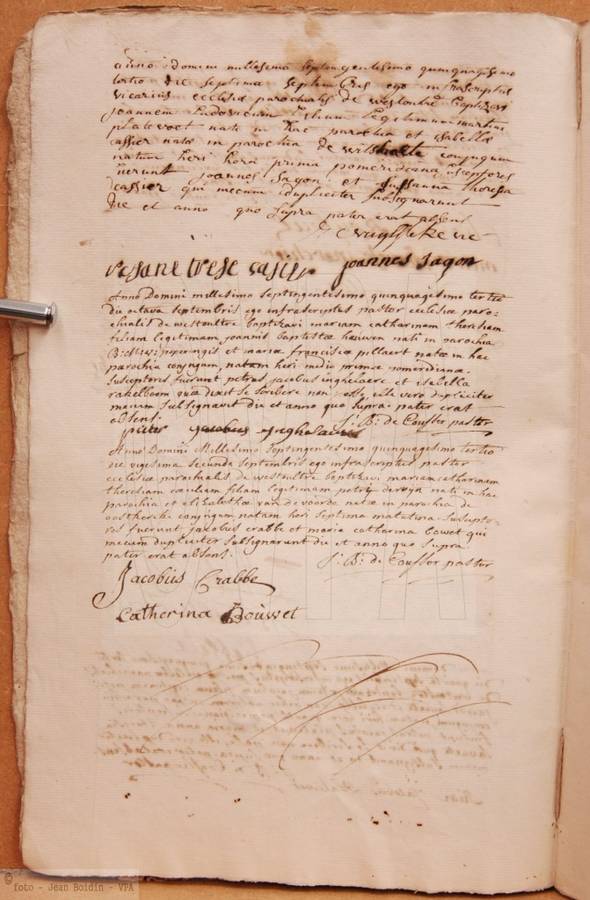 anno domini millesimo septingentesimo quinquagesimo
tertio die septima septembris ego infrascriptus
vicarius ecclesiæ parochialis de westoutre baptizavi
joannem ludovicum filium legitimum martini
platevoet nati in hac parochia et isabellæ
cassier natæ in parochia de conjugum
natum heri hora prima pomeridiana susceptores
fuerunt joannes sagon et susanna theresa
cassier qui mecum dupliciter subsignarunt
die et anno quo supra pater erat absens

joannes sagon
Anno Domini millesimo septingentesimo quinquagesimo tertio
die octava septembris ego infrascriptus pastor ecclesiæ paro=
chialis de westoultre baptizavi mariam catharinam theresiam
filiam legitimam joannis baptistæ hauwen nati in parochia
poperingis et mariæ franciscæ pillaert natæ in hac
parochia conjugum, natam heri medio primæ pomeridianæ.
susceptores fuerunt petrus jacobus inghelaere et isabella
quæ dixit se scribere non posse, ille vero dupliciter
mecum subsignavit die et anno quo supra. pater erat
absens. J: B: de Cousser pastor
pieter jacobus
Anno Domini Millesimo septingentesimo quinquagesimo tertio
die vigesima secunda septembris ego infrascriptus pastor
ecclesiæ parochialis de westoultre baptizavi mariam catharinam
theresiam cæciliam filiam legitimam petri nati in hac
parochia et elisabethæ van de voorde natæ in parochia de
conjugum natam heri septima matutina. suscepto=
res fuerunt jacobus crabbe et maria catharina bouwet qui
mecum dupliciter subsignarunt die et anno quo supra.
pater erat absens. J: B: de Cousser pastor
Jacobus Crabbe
Catherina Bouwet
© foto - Jean Boidin - VPA